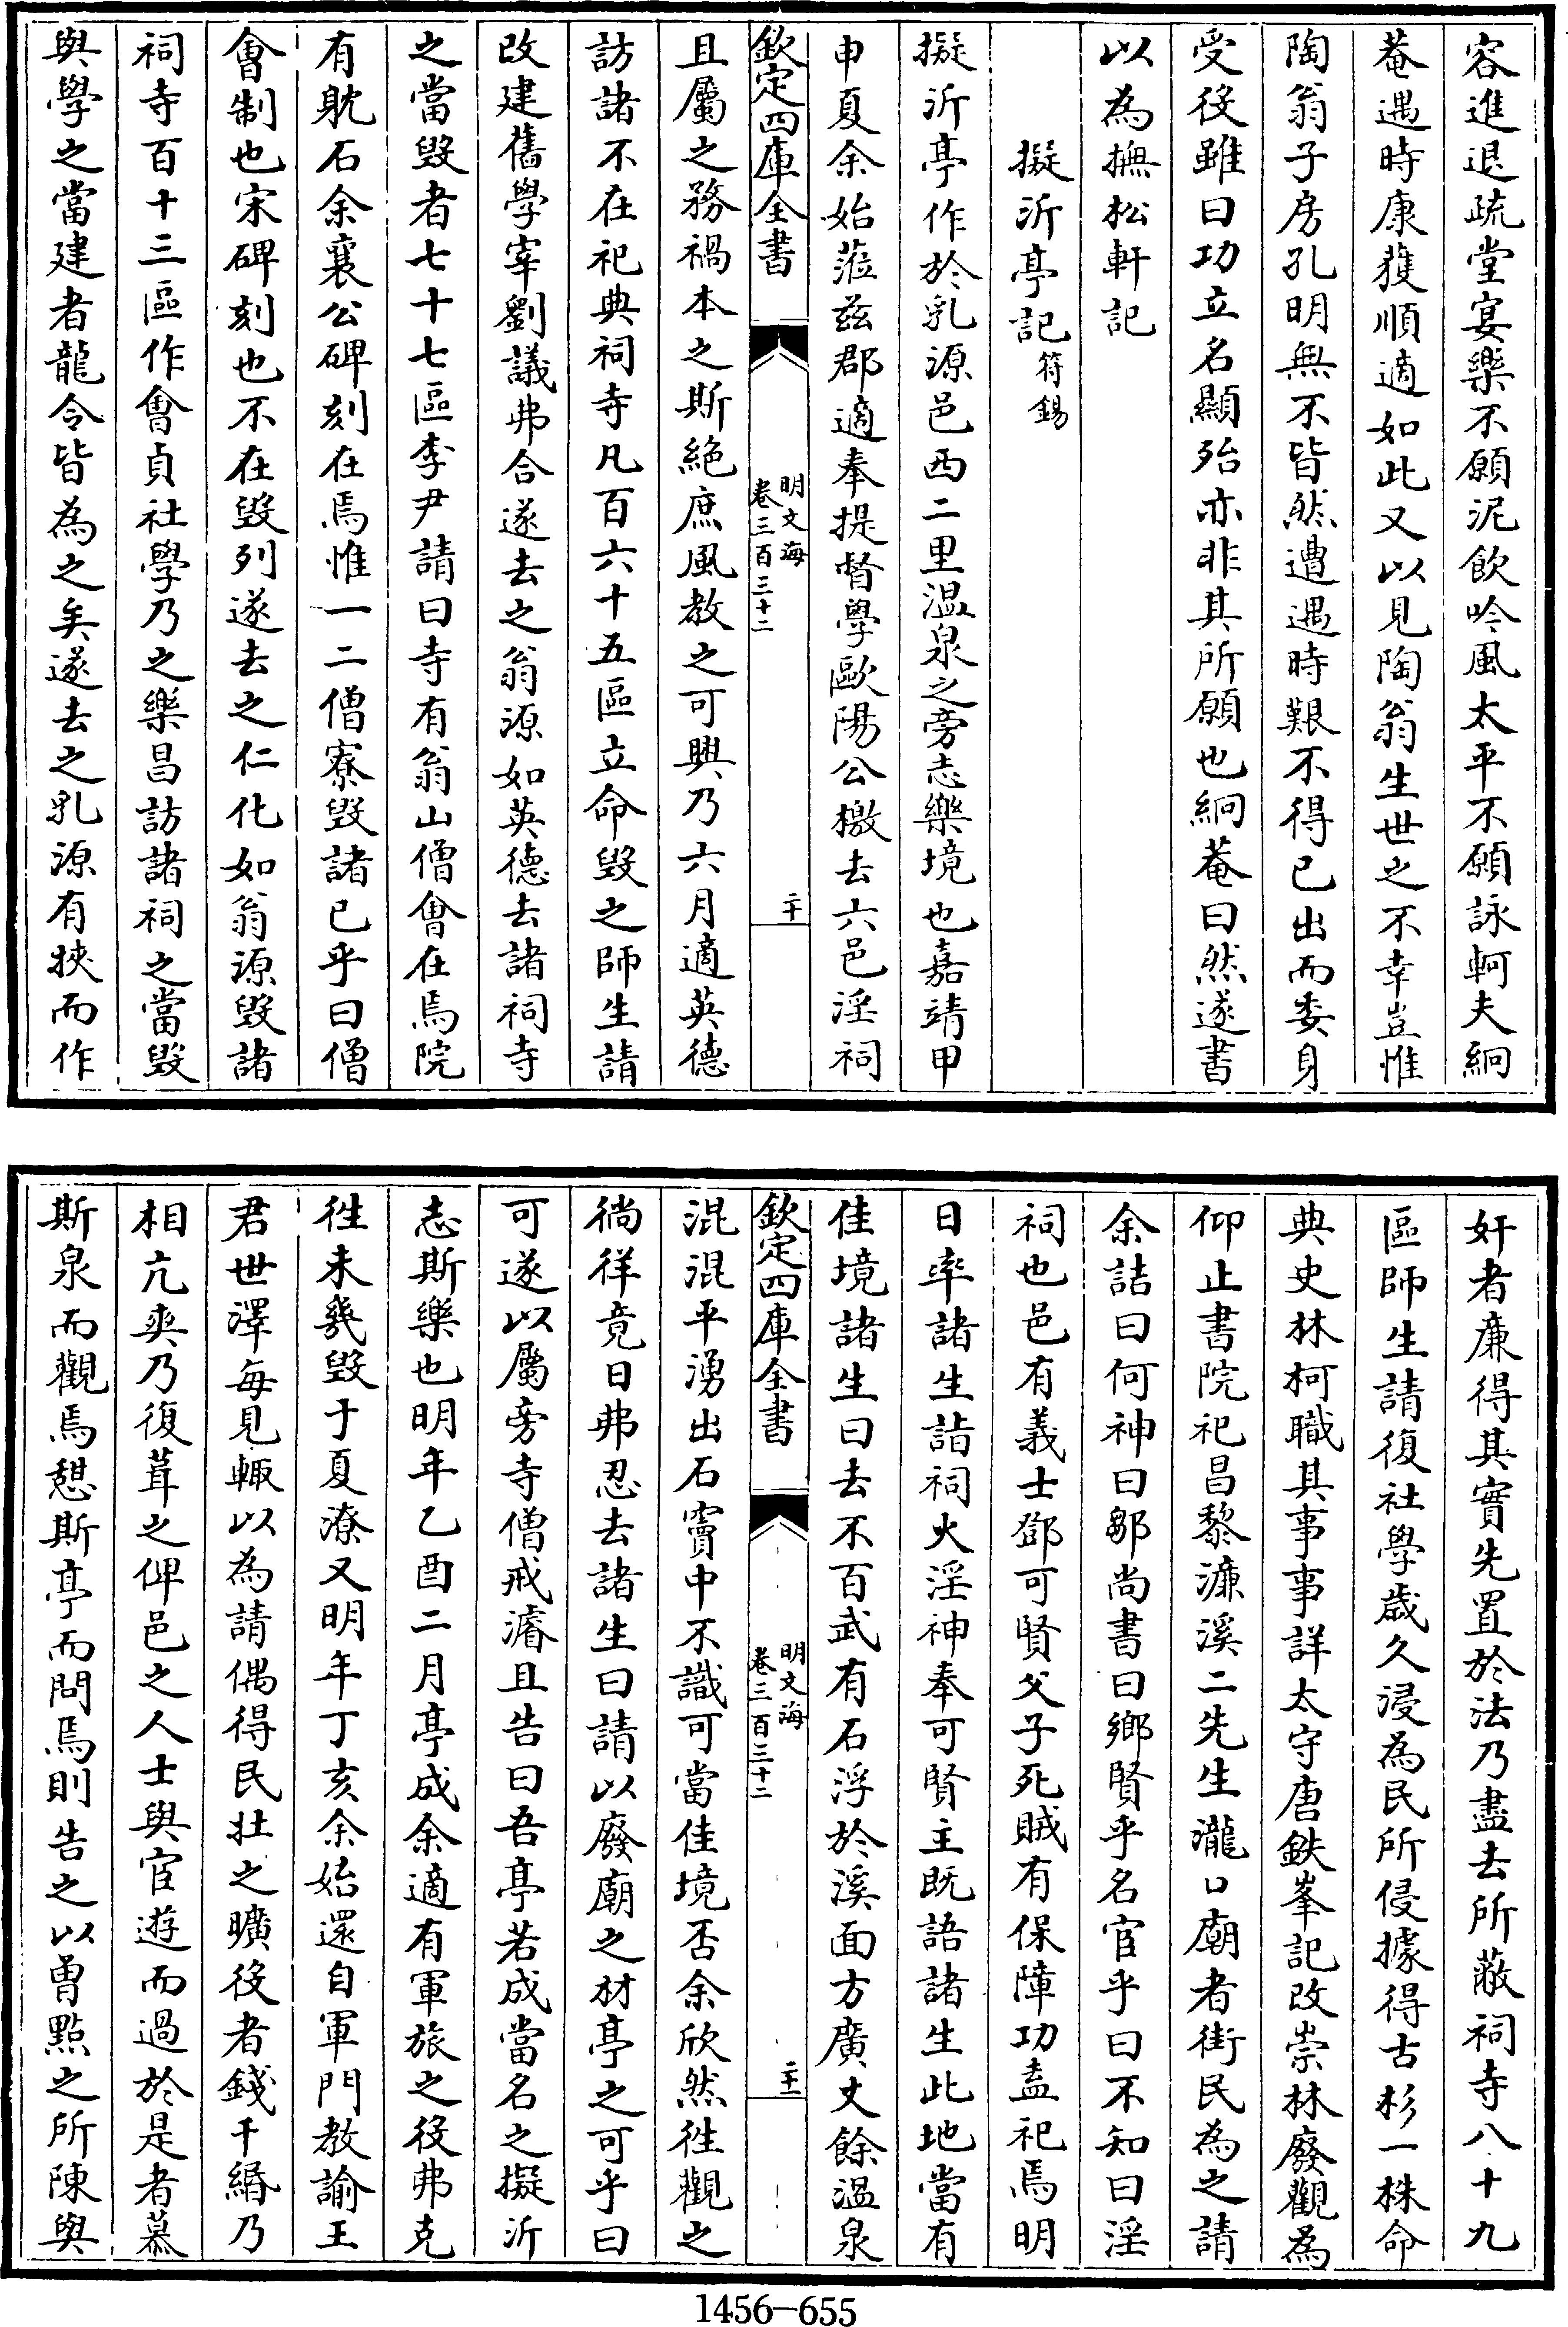 容進退疏堂宴樂不願泥飲吟風太平不願詠軻夫絅
菴遇時康獲順適如此又以見陶翁生世之不幸豈惟
陶翁子房孔明無不皆然遭遇時艱不得已出而委身
受役雖曰功立名顯殆亦非其所願也絅菴曰然遂書
以為撫松軒記
擬沂亭記符錫
擬沂亭作於乳源邑西二里温泉之旁志樂境也嘉靖甲
申夏余始蒞兹郡適奉提督學歐陽公檄去六邑淫祠
欽定四庫全書
明文海
卷三百三十二
二十
且屬之務禍本之斯絶庶風教之可興乃六月適英德
訪諸不在祀典祠寺凡百六十五區立命毁之師生請
改建舊學宰劉議弗合遂去之翁源如英德去諸祠寺
之當毁者七十七區李尹請曰寺有翁山僧會在焉院
有躭石余襄公碑刻在焉惟一二僧寮毁諸已乎曰僧
會制也宋碑刻也不在毁列遂去之仁化如翁源毁諸
祠寺百十三區作會貞社學乃之樂昌訪諸祠之當毁
與學之當建者龍令皆為之矣遂去之乳源有挾而作
奸者廉得其實先置於法乃盡去所蔽祠寺八十九
區師生請復社學歲久浸為民所侵據得古杉一株命
典史林柯職其事事詳太守唐鉄峯記改崇林廢觀為
仰止書院祀昌黎濂溪二先生瀧口廟者街民為之請
余詰曰何神曰鄒尚書曰鄉賢乎名宦乎曰不知曰淫
祠也邑有義士鄧可賢父子死賊有保障功盍祀焉明
日率諸生詣祠火淫神奉可賢主既語諸生此地當有
佳境諸生曰去不百武有石浮於溪面方廣丈餘温泉
欽定四庫全書
明文海
卷三百三十二
二十一
混混平湧出石竇中不識可當佳境否余欣然徃觀之
徜徉竟日弗忍去諸生曰請以廢廟之材亭之可乎曰
可遂以屬旁寺僧戒濬且告曰吾亭若成當名之擬沂
志斯樂也明年乙酉二月亭成余適有軍旅之役弗克
徃未幾毁于夏潦又明年丁亥余始還自軍門教諭王
君世澤每見輙以為請偶得民壯之曠役者錢千緡乃
相亢爽乃復葺之俾邑之人士與宦遊而過於是者慕
斯泉而觀焉憇斯亭而問焉則告之以曾點之所陳與
1456-655